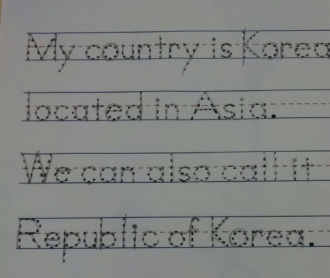 My country is Korea
located in Asia.
We can also call it
Republic of Korea.